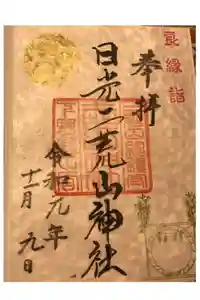 良縁詣
奉拝
日光二荒山神社
令和元年
十二月九日